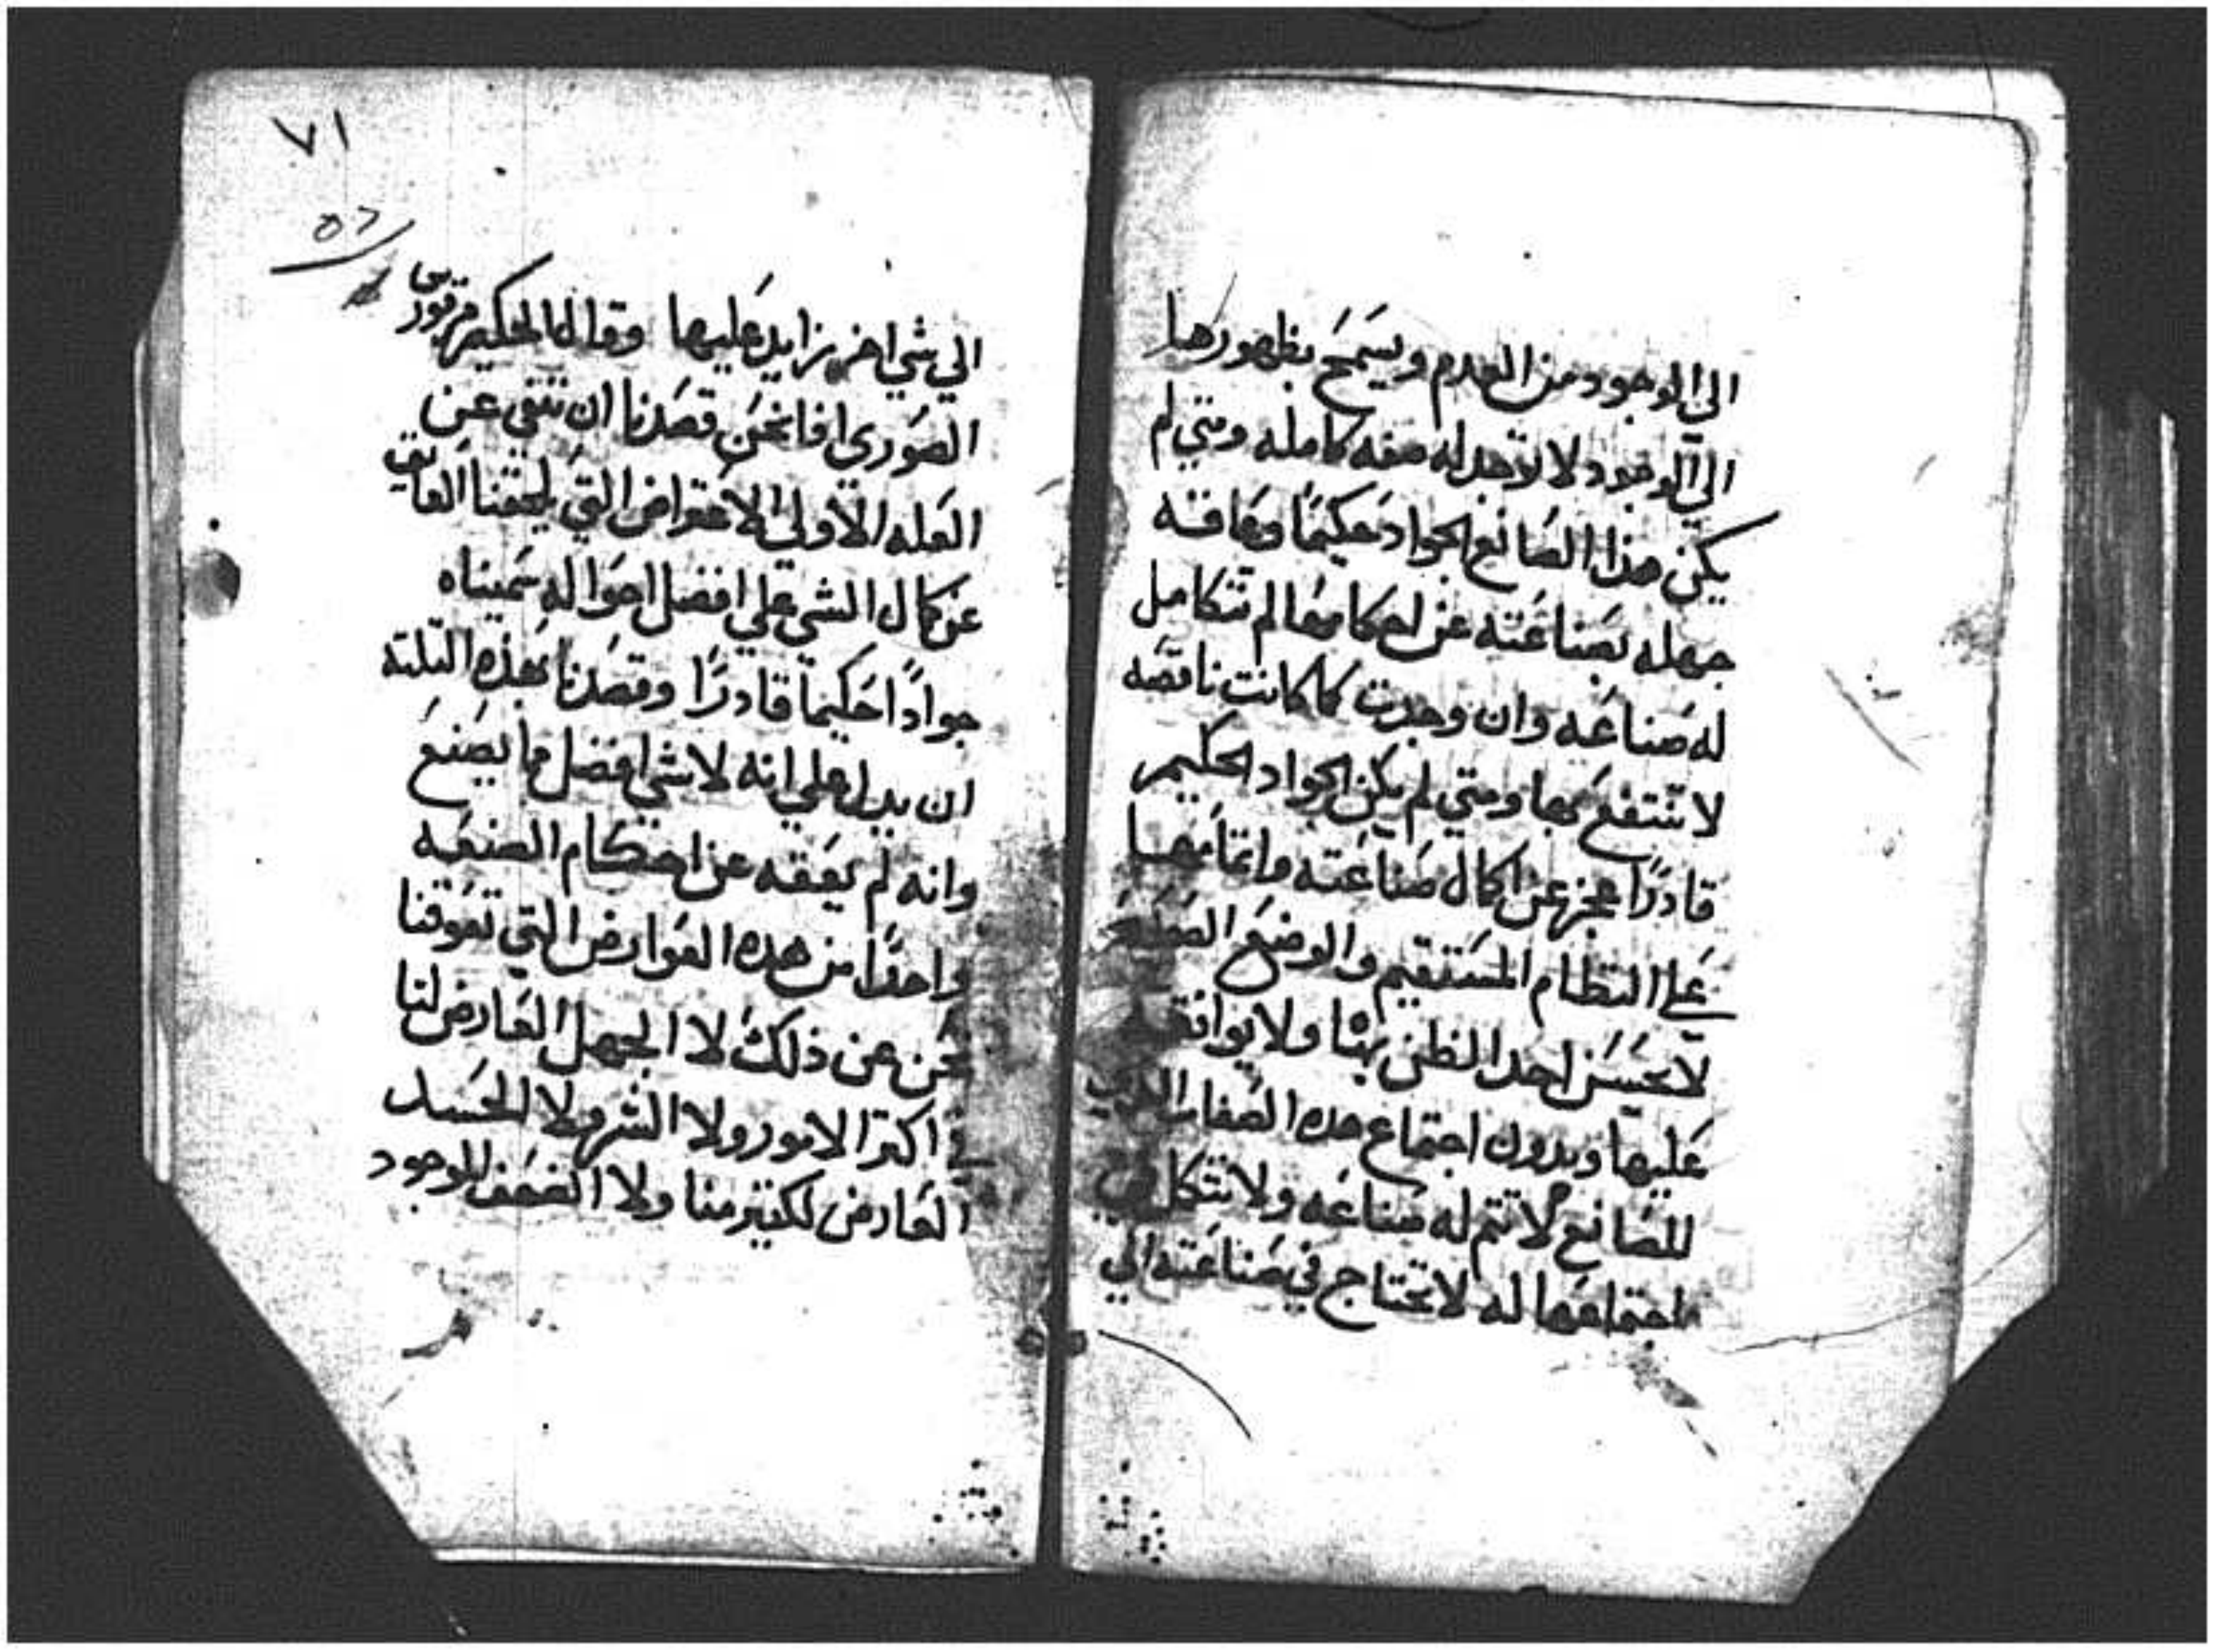 الي الوجود من العدم ويسمح بظهورها
الي الوجود لا توجد له صفه كامله ومتي لم
يكن هذا الصانع الجواد حكيمًا وعاقه
جهله بصناعته عن احكامها لم تتكامل
له صناعه وان وجدت كما كانت ناقصه
لا ننتفع بها ومتي لم يكن الجواد الحكيم
قادرًا عجز عن اكمال صناعته واتمامها
علي النظام المستقيم والوضع
لا يحسن احد الظن بها ولا يوافق
عليها وبدون اجتماع هده الصفات
للصانع لا تتم له صناعه ولا تتكمل
باجتماعها له لا تحتاج في صناعته الي
٧١
٥٢
الي شي اخر زايد عليها وقال الحكيم مرقوريس
الصوري افا نحن قصدنا ان ننفي عن
العله الاولي الاعتراض التي يلحقنا العايق
عن كمال الشي علي افضل احواله سميناه
جوادًا حكيما قادرًا وقصدنا بهذه التلتة
ان يدل علي انه لا شي افضل مما يصنع
وانه لم يعقه عن احكام الصنعه
واحدًا من هده العوارض التي تعوقنا
نحن عن ذلك لا الجهل العارض لنا
في اكتر الامور ولا الشره ولا الحسد
العارض لكتير منا ولا الضعف الموجود